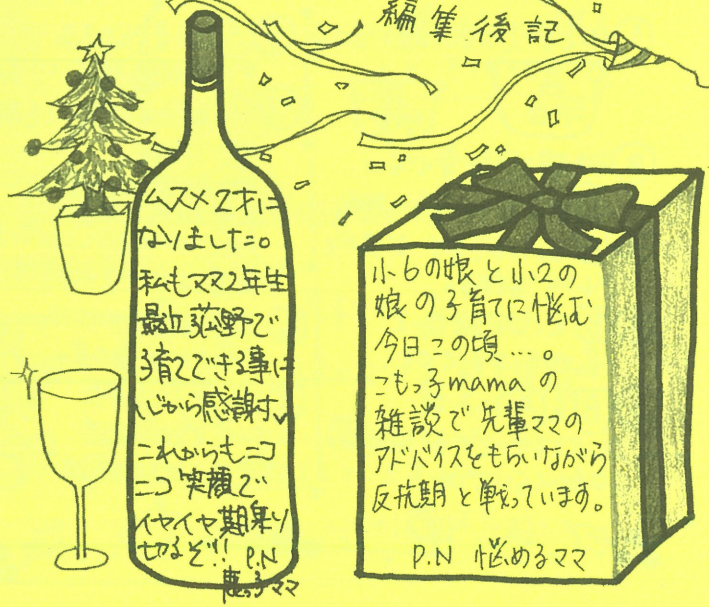 編集後記
ムスメ2才に
なりました。
私もママ2年生
最近荻野で
子育てできる事に
心から感謝す
これからもニコ
ニコ笑顔で
イヤイヤ期乗り
切るぞ!! P.N
鹿っ子ママ
小6の娘と小2の
娘の子育てに悩む
今日この頃…。
こもっ子mamaの
雑談で先輩ママの
アドバイスをもらいながら
反抗期と戦っています。
P.N 悩めるママ